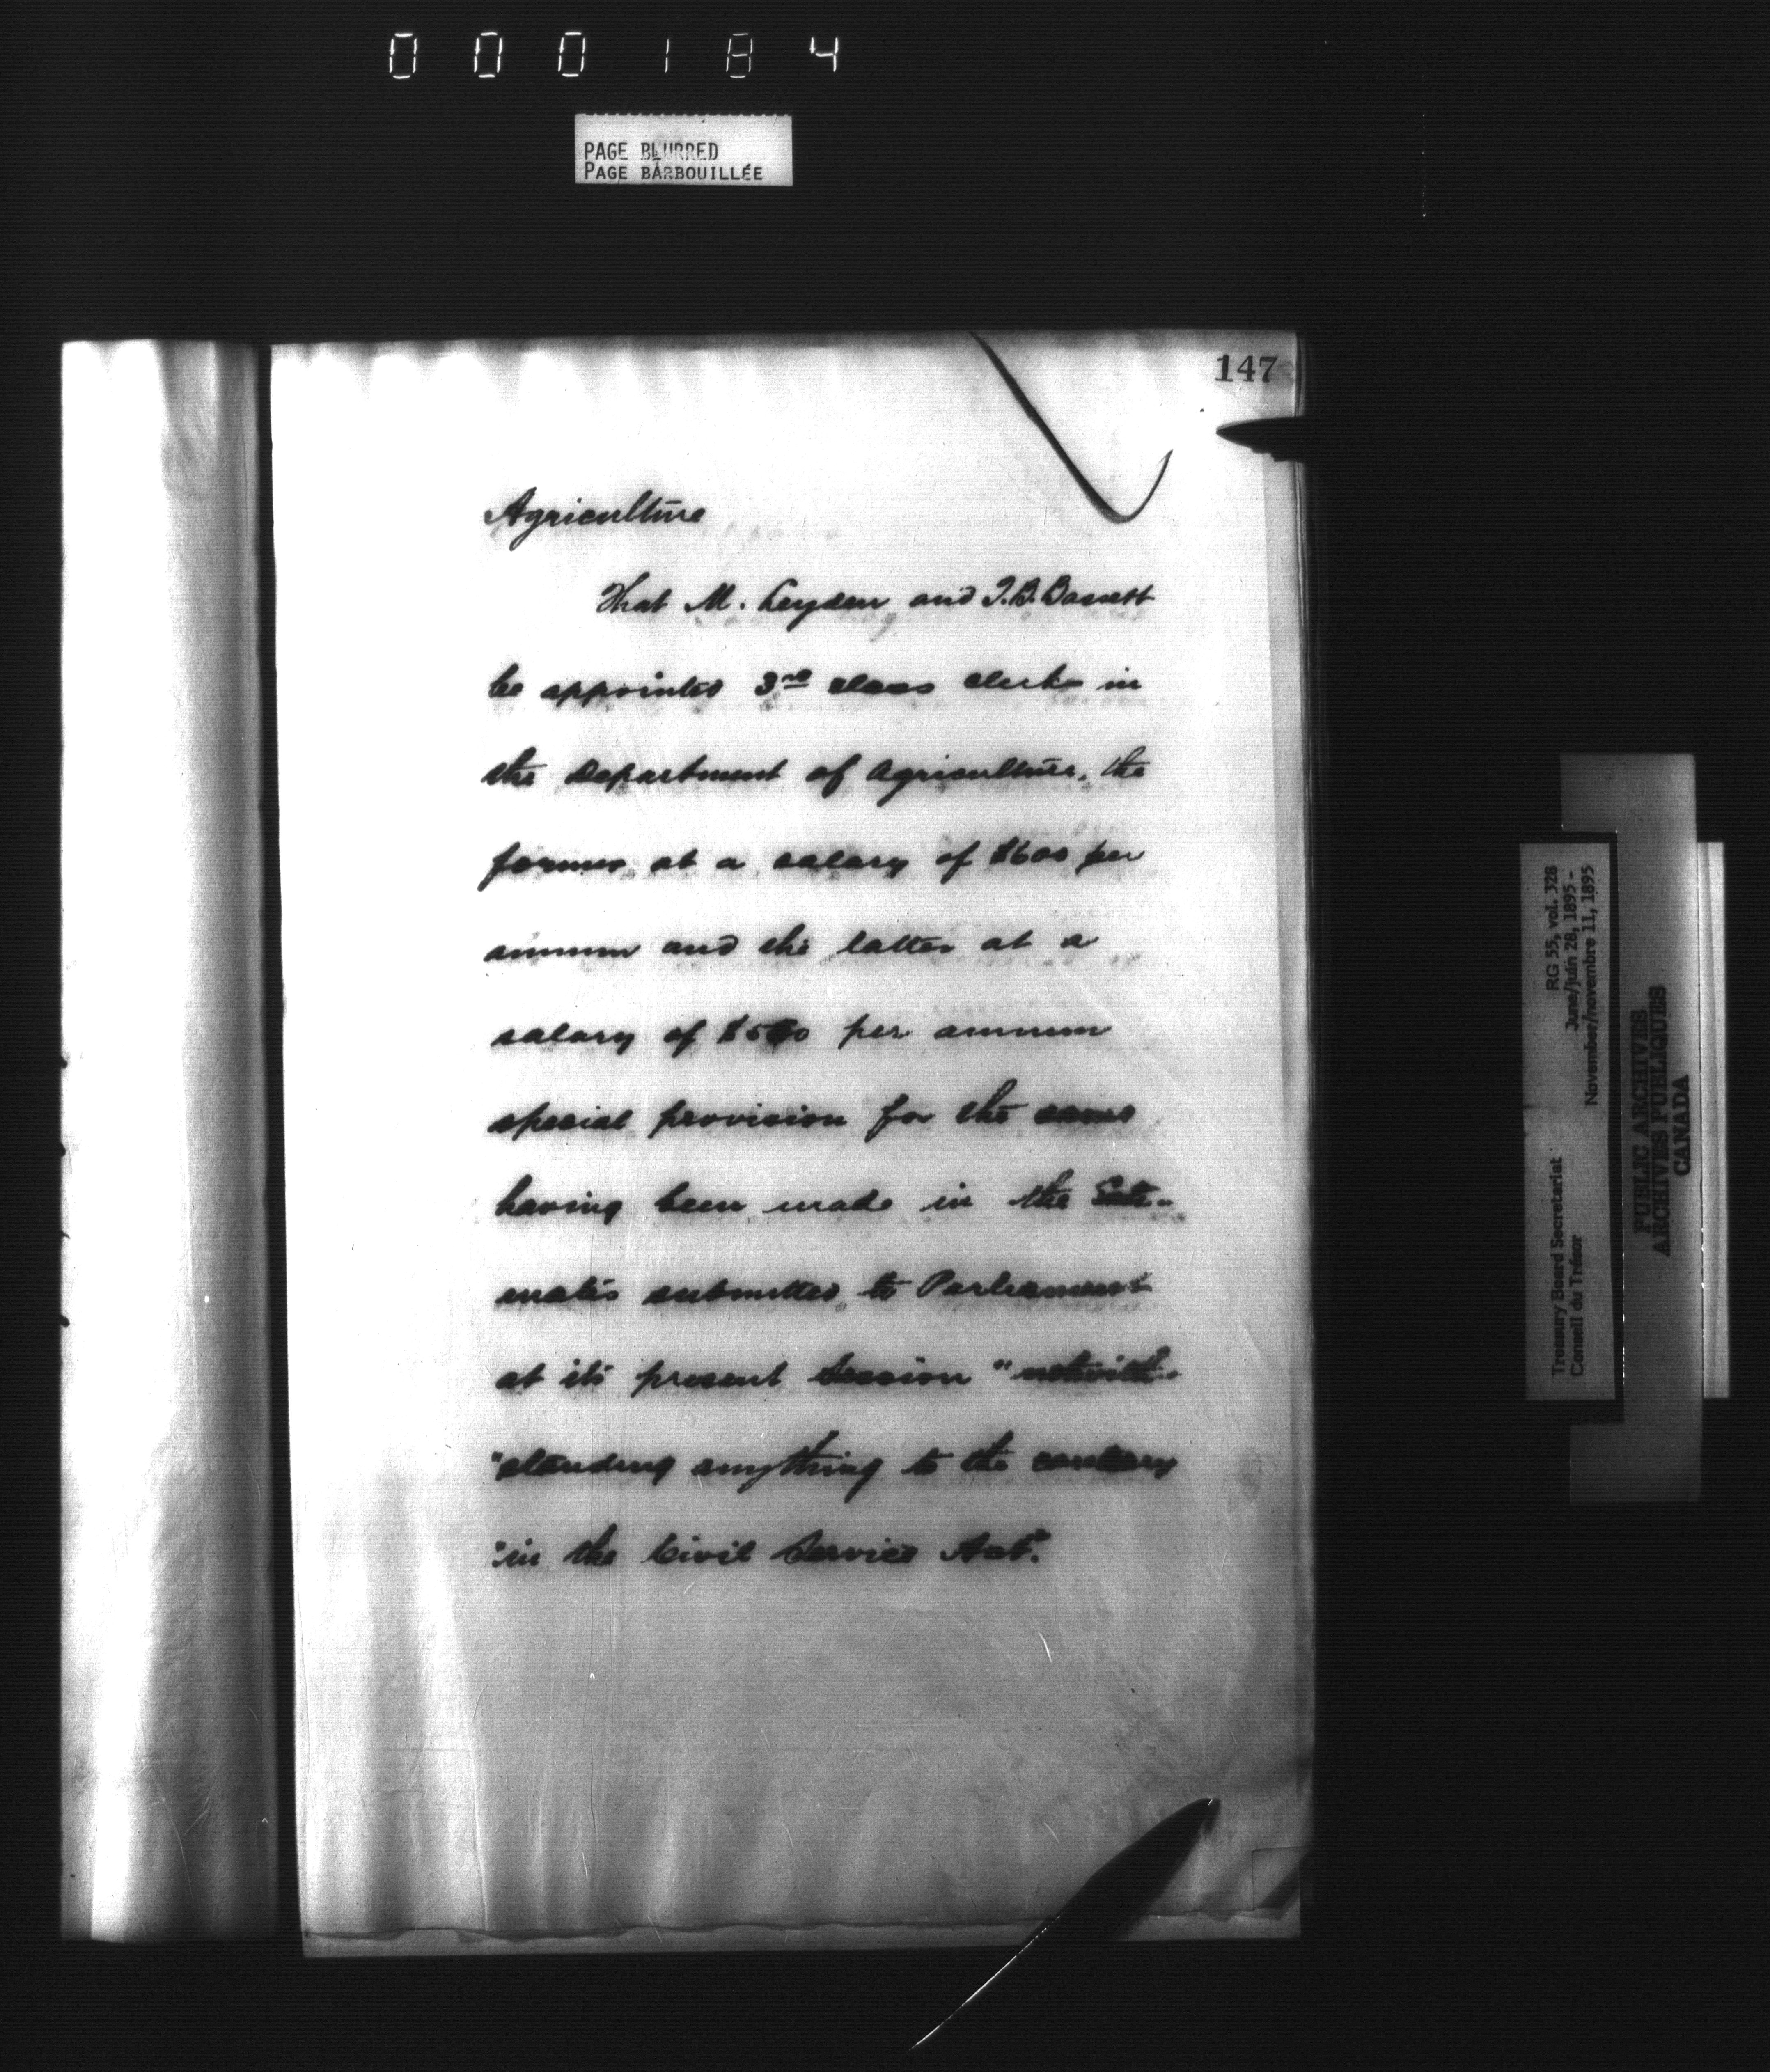 000184
PAGE BLURRED
PAGE BARBOUILLÉE
147
Agriculture
That M. Leyden and J.B. Bassett
be appointed 3rd class clerks in
the Department of Agriculture, the
former at a salary of $600 per
annum and the latter at a
salary of per annum
special provision for the same
having been made in the Esti-
mates submitted to Parliament
at its present Session "notwith-
"standing anything to the contrary
"in the Civil Service Act."
Treasury Board Secretariat RG 55, vol. 328
Conseil du Trésor June/juin 28, 1895 -
November/novembre 11, 1895
PUBLIC ARCHIVES
ARCHIVES PUBLIQUES
CANADA